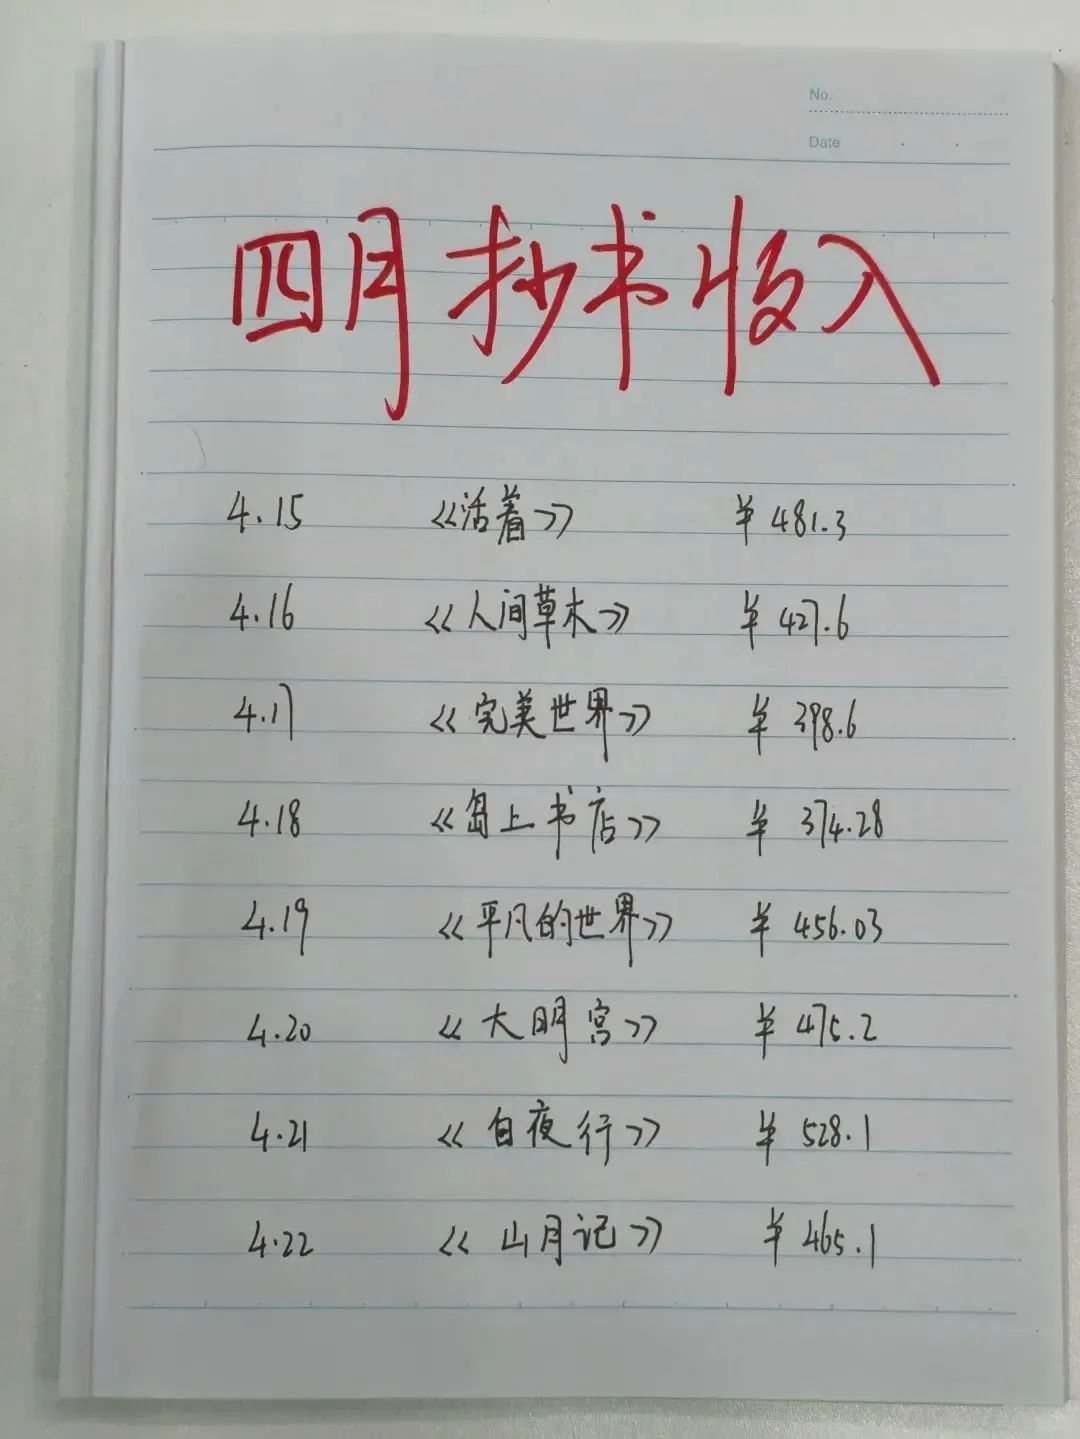 No.
Date
四月抄书收入
4.15 《活着》 ¥481.3
4.16 《人间草木》 ¥427.6
4.17 《完美世界》 ¥398.6
4.18 《岛上书店》 ¥374.28
4.19 《平凡的世界》 ¥456.03
4.20 《大明宫》 ¥475.2
4.21 《白夜行》 ¥528.1
4.22 《山月记》 ¥465.1